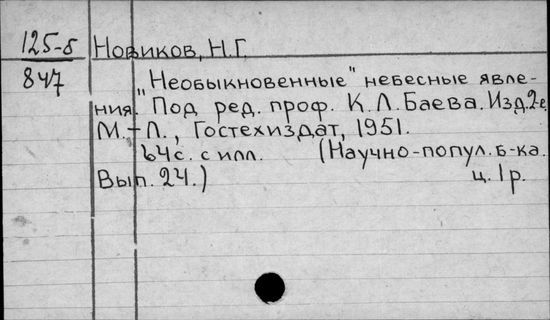 125-5 Новиков, Н.Г.
847
"Необыкновенные" небесные явле-
ния. Под ред. проф. К.Л.Баева. Изд.2е,
М.-Л., Гостехиздат, 1951.
64с. с илл. (Научно-попул. б-ка.
Вып. 24.) ц. 1р.